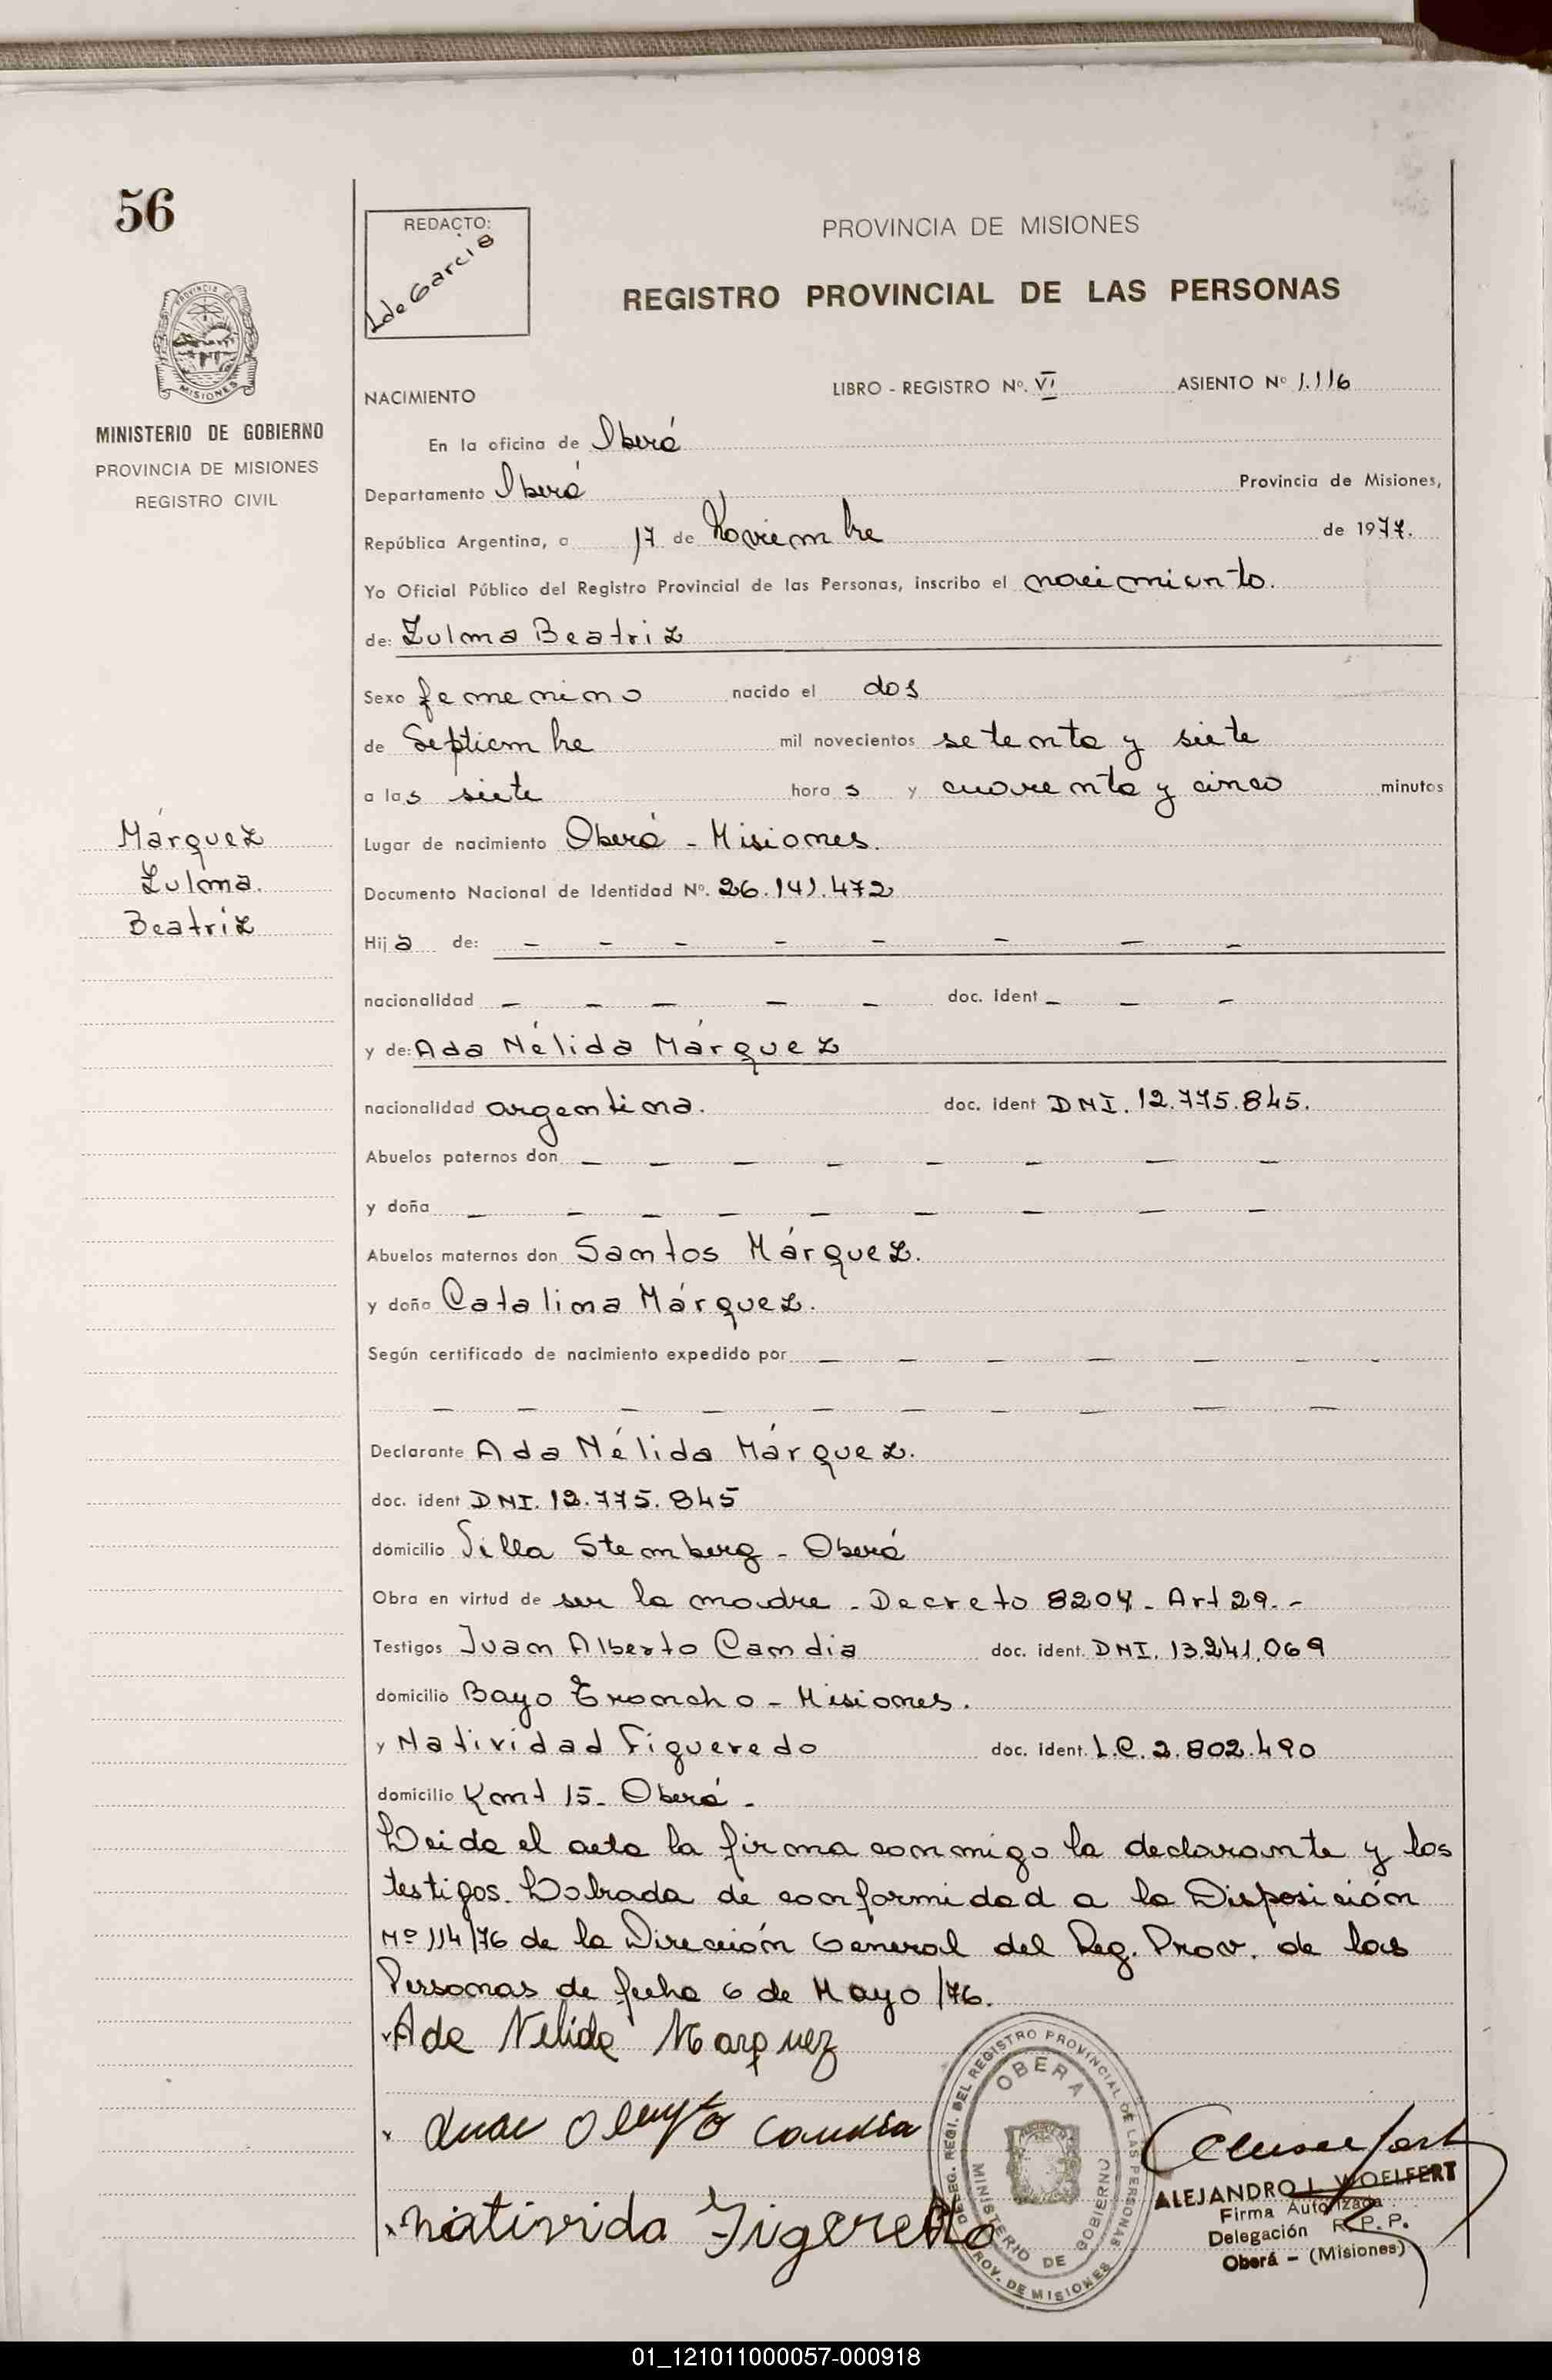 56
REDACTO:
L de Garcia
PROVINCIA DE MISIONES
REGISTRO PROVINCIAL DE LAS PERSONAS
PROVINCIA DE
MISIONES
MINISTERIO DE GOBIERNO
PROVINCIA DE MISIONES
REGISTRO CIVIL
NACIMIENTO LIBRO - REGISTRO Nº. VI ASIENTO Nº 1.116
En la oficina de Oberá
Departamento Oberá Provincia de Misiones,
República Argentina, a 17 de Noviembre de 1977.
Yo Oficial Público del Registro Provincial de las Personas, inscribo el nacimiento.
de: Zulma Beatriz
Sexo femenino nacido el dos
de Septiembre mil novecientos setenta y siete
a las siete horas y cuarenta y cinco minutos
Márquez
Zulma.
Beatriz
Lugar de nacimiento Oberá - Misiones.
Documento Nacional de Identidad Nº. 26.141.472
Hija de: - - - - - - - -
nacionalidad - - - - - doc. ident - - -
y de: Ada Nélida Márquez
nacionalidad argentina. doc. ident DNI. 12.775.845.
Abuelos paternos don - - - - - - - -
y doña - - - - - - - - -
Abuelos maternos don Santos Márquez.
y doña Catalina Márquez.
Según certificado de nacimiento expedido por - - - - - - -
- - - - - - - - - -
Declarante Ada Nélida Márquez.
doc. ident DNI. 12.775.845
domicilio Villa Stemberg - Oberá
Obra en virtud de ser la madre - Decreto 8204 - Art 29. -
Testigos Juan Alberto Candia doc. ident. DNI. 13.241.069
domicilio Bayo Troncho - Misiones.
y Natividad Figueredo doc. ident. L.C. 2.802.490
domicilio Kmt 15 - Oberá -
Leida el acta la firma conmigo la declarante y los
testigos. Labrada de conformidad a la Disposición
Nº 114/76 de la Dirección General del Reg. Prov. de las
Personas de fecha 6 de Mayo /76.
Ada Nelida Marquez
Candia
nativida Figeredo
DELEG. REGI. DEL REGISTRO PROVINCIAL DE LAS PERSONAS
OBERA
MINISTERIO DE GOBIERNO
PROV. DE MISIONES
ALEJANDRO L. WOELFERT
Firma Autorizada
Delegación R.P.P.
Oberá - (Misiones)
01_121011000057-000918